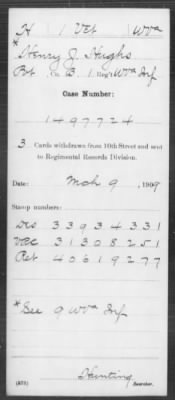 H 1 Vet WVa
* Henry J. Hughs
Pvt, Co. B, 1 Reg't WVa Inf
Case Number:
1497724
3 Cards withdrawn from 10th Street and sent
to Regimental Records Division.
Date: Mch 9, 1909
Stamp numbers:
Des 33934331
VRC 31308251
Ret 40619277
* See 9 WVa Inf
Hunting
Searcher.
(573)